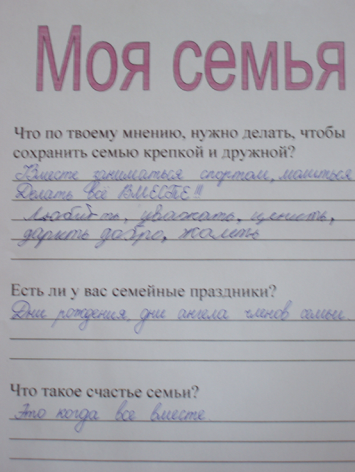 Моя семья
Что по твоему мнению, нужно делать, чтобы
сохранить семью крепкой и дружной?
Вместе заниматься спортом, молиться
Делать всё ВМЕСТЕ!!!
Любить, уважать, ценить,
дарить добро, жалить
Есть ли у вас семейные праздники?
Дни рождения, дни ангела членов семьи
Что такое счастье семьи?
Это когда все вместе